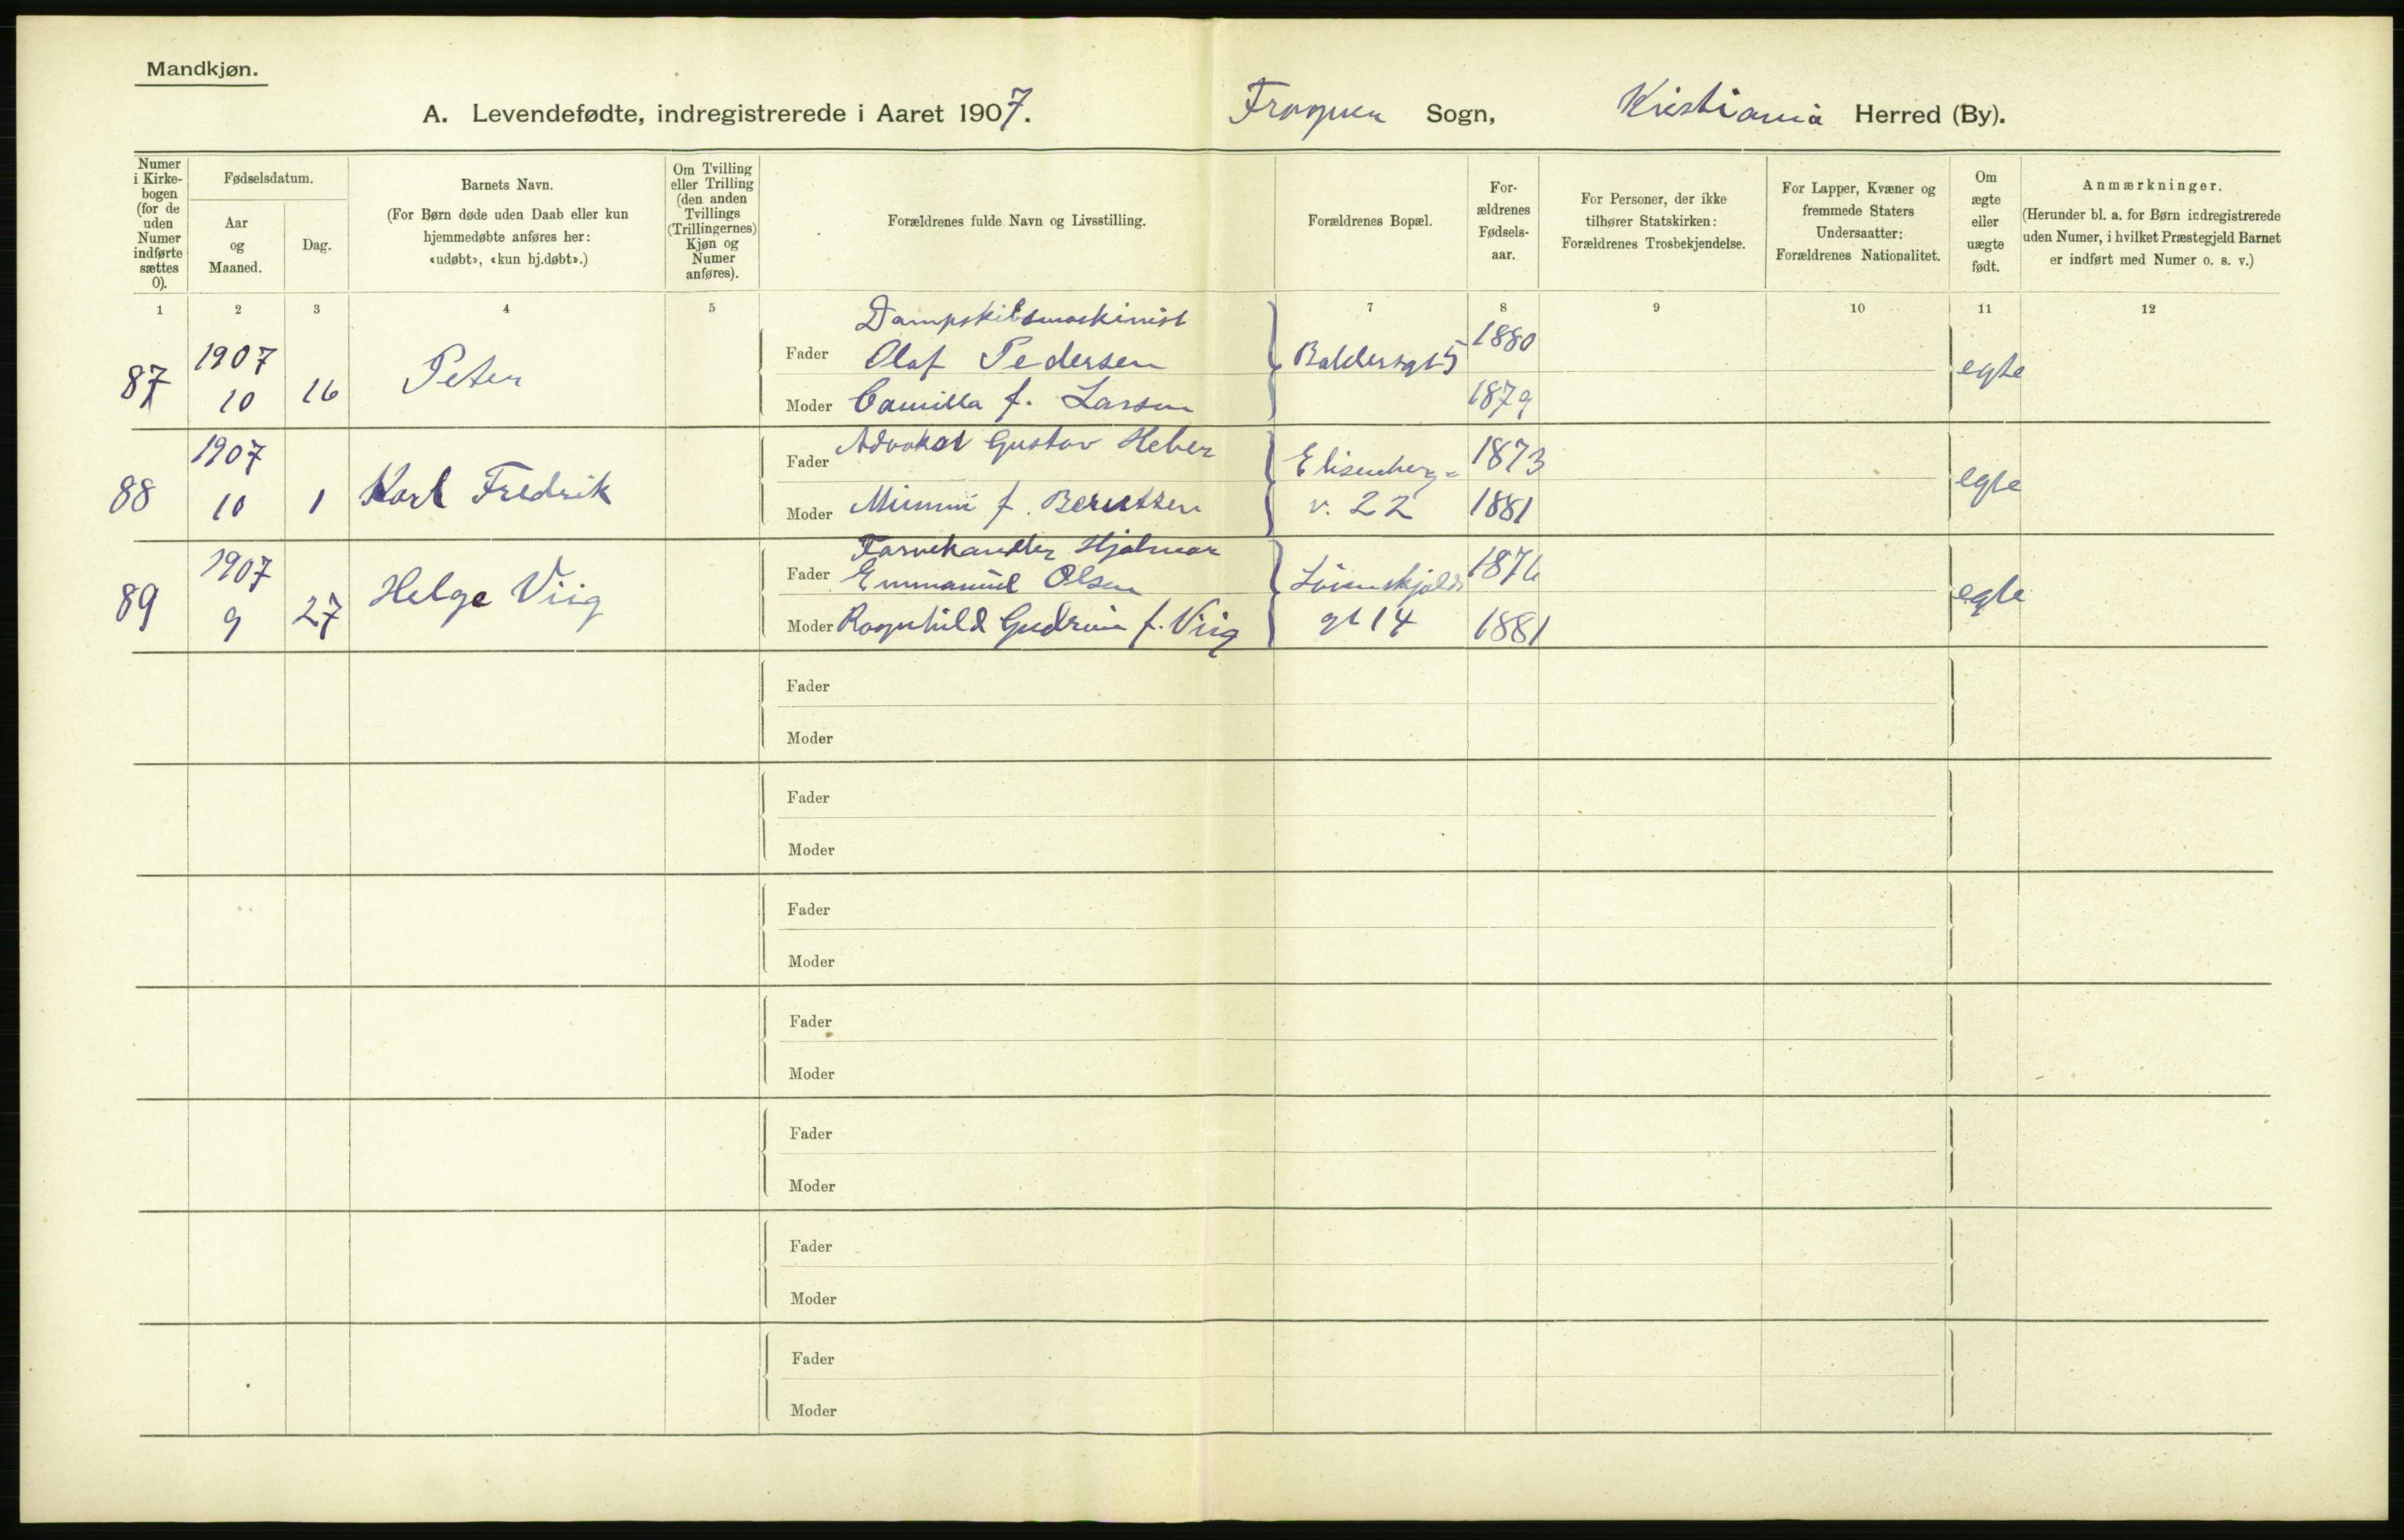 Mandkjøn.
A. Levendefødte, indregistrerede i Aaret 1907. Frogner Sogn, Kristiania Herred (By).
Numer i Kirkebogen (for de uden Numer indførte sættes 0).
Fødselsdatum.
Aar og Maaned.
Dag.
Barnets Navn.
(For Børn døde uden Daab eller kun
hjemmedøbte anføres her:
«udøbt», «kun hj.døbt».)
Om Tvilling
eller Trilling
(den anden
Tvillings
(Trillingernes)
Kjøn og
Numer
anføres).
Forældrenes fulde Navn og Livsstilling.
Forældrenes Bopæl.
For-
ældrenes
Fødsels-
aar.
For Personer, der ikke
tilhører Statskirken:
Forældrenes Trosbekjendelse.
For Lapper, Kvæner og
fremmede Staters
Undersaatter:
Forældrenes Nationalitet.
Om
ægte
eller
uægte
født.
Anmærkninger.
(Herunder bl. a. for Børn indregistrerede
uden Numer, i hvilket Præstegjeld Barnet
er indført med Numer o. s. v.)
1 2 3 4 5 7 8 9 10 11 12
87 1907 10 16 Peter
Dampskibsmaskinist
Fader Olaf Pedersen
Moder Camilla f. Larsen
Baldersgt 5
1880
1879
egte
88 1907 10 1 Karl Fredrik
Fader Advokat Gustav Heber
Moder Mimmi f. Berntzen
Elisenberg-
v. 22
1873
1881
egte
89 1907 9 27 Helge Viig
Farvehandler Hjalmar
Fader Emmanuel Olsen
Moder Ragnhild Gudrun f. Viig
gt 14
1876
1881
egte
Fader
Moder
Fader
Moder
Fader
Moder
Fader
Moder
Fader
Moder
Fader
Moder
Fader
Moder